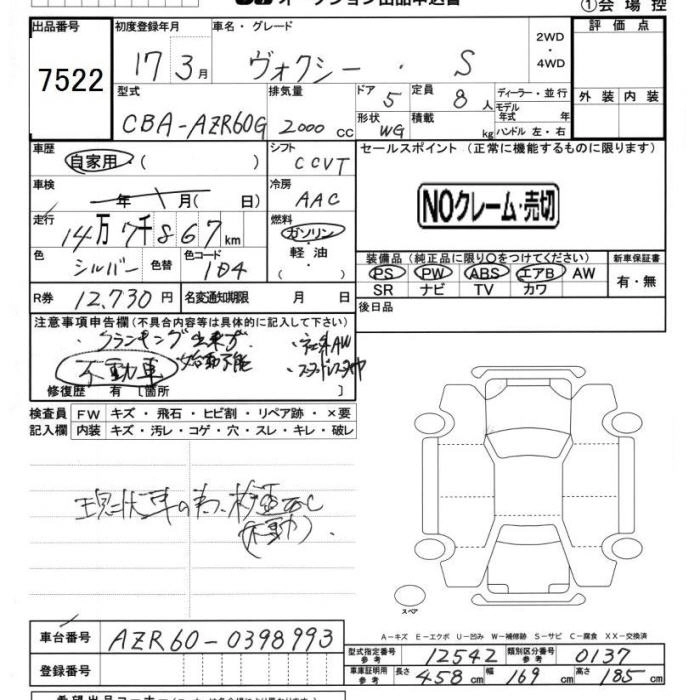 オークション出品申込書 ①会場控
出品番号 初度登録年月 車名・グレード 2WD ・ 4WD 評価点
7522 17 3月 ヴォクシー ・ S
型式 排気量 ドア 5 定員 8人 ディーラー・並行 外装 内装
CBA-AZR60G 2000cc 形状 WG 積載 kg モデル年式 年 ハンドル 左・右
車歴 自家用・( ) シフト CCVT セールスポイント(正常に機能するものに限ります)
車検 年 月( 日) 冷房 AAC NOクレーム・売切
走行 14万7千867km 燃料 ガソリン・軽油・( )
色 シルバー 色替 色コード 1D4 装備品(純正品に限り○をつけてください) 新車保証書
PS PW ABS エアB AW 有・無
SR ナビ TV カワ
R券 12,730円 名変通知期限 月 日 後日品
注意事項申告欄(不具合内容等は具体的に記入して下さい)
・クランキング出来ず ・社外AW
不動車 始動不能 ・スタッドレスタイヤ
修復歴 有[箇所 ]
検査員 FW キズ・飛石・ヒビ割・リペア跡・×要
記入欄 内装 キズ・汚レ・コゲ・穴・スレ・キレ・破レ
現状車の為、検査なし
(不動)
スペア
A−キズ E−エクボ U−凹み W−補修跡 S−サビ C−腐食 XX−交換済
車台番号 AZR60-0398993
型式指定番号 参考 12542 類別区分番号 参考 0137
登録番号 車庫証明用 参考 長さ 458cm 幅 169cm 高さ 185cm
希望出品コーナー